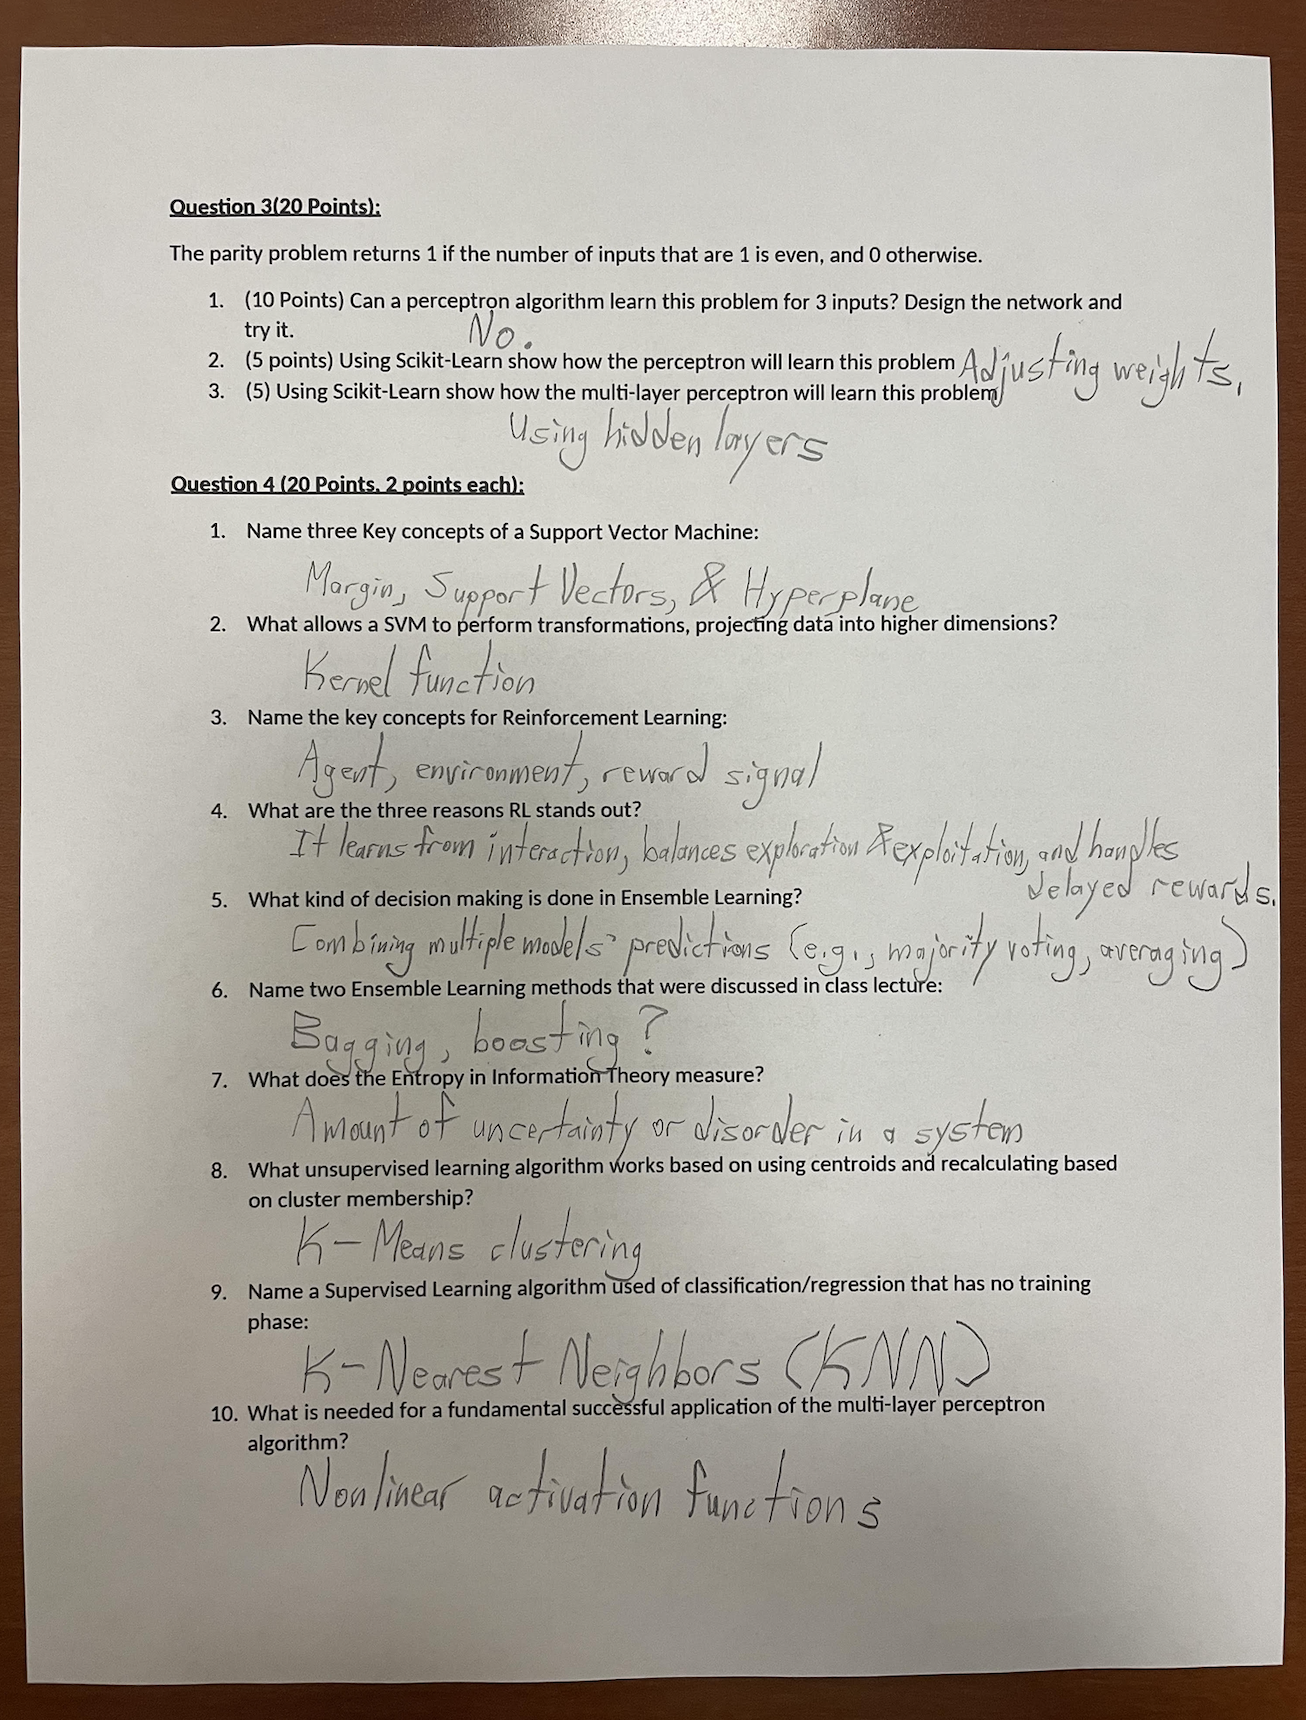 Question 3(20 Points):
The parity problem returns 1 if the number of inputs that are 1 is even, and 0 otherwise.
1. (10 Points) Can a perceptron algorithm learn this problem for 3 inputs? Design the network and
try it.
No.
2. (5 points) Using Scikit-Learn show how the perceptron will learn this problem Adjusting weights.
3. (5) Using Scikit-Learn show how the multi-layer perceptron will learn this problem
Using hidden layers
Question 4 (20 Points, 2 points each):
1. Name three Key concepts of a Support Vector Machine:
Margin, Support Vectors, & Hyperplane
2. What allows a SVM to perform transformations, projecting data into higher dimensions?
Kernel function
3. Name the key concepts for Reinforcement Learning:
Agent, environment, reward signal
4. What are the three reasons RL stands out?
It learns from interaction, balances exploration & exploitation, and handles
delayed rewards.
5. What kind of decision making is done in Ensemble Learning?
Combining multiple models' predictions (e.g., majority voting, averaging)
6. Name two Ensemble Learning methods that were discussed in class lecture:
Bagging, boosting?
7. What does the Entropy in Information Theory measure?
Amount of uncertainty or disorder in a system
8. What unsupervised learning algorithm works based on using centroids and recalculating based
on cluster membership?
K-Means clustering
9. Name a Supervised Learning algorithm used of classification/regression that has no training
phase:
K-Nearest Neighbors (KNN)
10. What is needed for a fundamental successful application of the multi-layer perceptron
algorithm?
Nonlinear activation functions